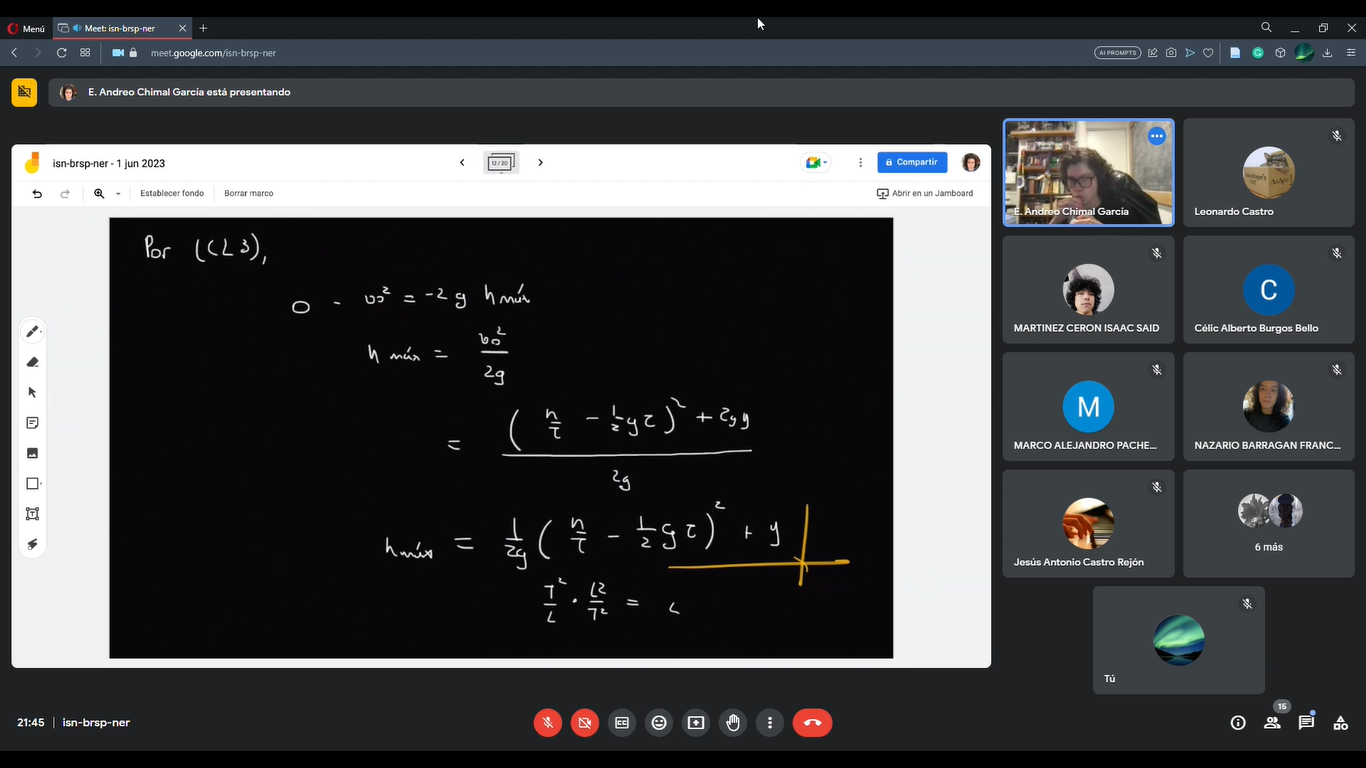 Menú
Meet: isn-brsp-ner
meet.google.com/isn-brsp-ner
AI PROMPTS
E. Andreo Chimal García está presentando
isn-brsp-ner - 1 jun 2023
12 / 20
Compartir
Establecer fondo
Borrar marco
Abrir en un Jamboard
Por (CL3),
0 - v₀² = -2g hmáx
hmáx = v₀² / 2g
= ((h/τ - ½gτ)² + 2gy) / 2g
hmáx = 1/2g (h/τ - ½gτ)² + y
T²/L · L²/T² = L
E. Andreo Chimal García
Leonardo Castro
MARTINEZ CERON ISAAC SAID
C
Célic Alberto Burgos Bello
M
MARCO ALEJANDRO PACHE...
NAZARIO BARRAGAN FRANC...
Jesús Antonio Castro Rejón
6 más
Tú
21:45
isn-brsp-ner
15